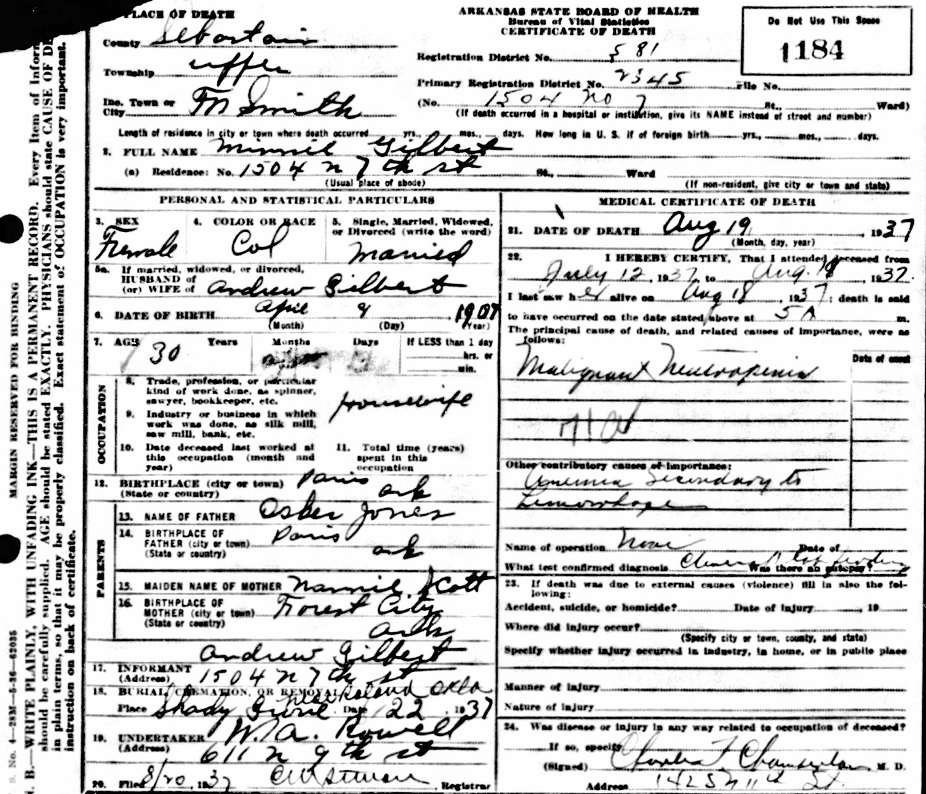 PLACE OF DEATH
County Sebastain
Township upper
Inc. Town or City Ft Smith
ARKANSAS STATE BOARD OF HEALTH
Bureau of Vital Statistics
CERTIFICATE OF DEATH
Registration District No. 581
Primary Registration District No. 2345 File No.
(No. 1504 No 7 St., Ward)
(If death occurred in a hospital or institution, give its NAME instead of street and number)
Do Not Use This Space
1184
Length of residence in city or town where death occurred yrs., mos., days. How long in U. S. if of foreign birth yrs., mos., days.
2. FULL NAME Minnie Gilbert
(a) Residence: No. 1504 n 7th st St., Ward
(Usual place of abode) (If non-resident, give city or town and state)
PERSONAL AND STATISTICAL PARTICULARS
3. SEX Female
4. COLOR OR RACE Col
5. Single, Married, Widowed, or Divorced (write the word) Married
5a. If married, widowed, or divorced,
HUSBAND of
(or) WIFE of Andrew Gilbert
6. DATE OF BIRTH April 9 1907
(Month) (Day) (Year)
7. AGE 30 Years Months Days If LESS than 1 day hrs. or min.
OCCUPATION
8. Trade, profession, or particular kind of work done, as spinner, sawyer, bookkeeper, etc. Housewife
9. Industry or business in which work was done, as silk mill, saw mill, bank, etc.
10. Date deceased last worked at this occupation (month and year)
11. Total time (years) spent in this occupation
12. BIRTHPLACE (city or town) Paris
(State or country) ark
PARENTS
13. NAME OF FATHER Osker Jones
14. BIRTHPLACE OF FATHER (city or town) Paris
(State or country) ark
15. MAIDEN NAME OF MOTHER Nannie Scott
16. BIRTHPLACE OF MOTHER (city or town) Forest City
(State or country) Ark
17. INFORMANT Andrew Gilbert
(Address) 1504 n 7th st
18. BURIAL, CREMATION, OR REMOVAL Roland Okla
Place Shady Grove Date 22 1937
19. UNDERTAKER W. A. Rowell
(Address) 611 n 9th st
20. Filed 8/20 1937 Registrar
MEDICAL CERTIFICATE OF DEATH
21. DATE OF DEATH Aug 19 1937
(Month, day, year)
22. I HEREBY CERTIFY, That I attended deceased from
July 12, 1937 to Aug. 19 1937.
I last saw her alive on Aug 18, 1937; death is said
to have occurred on the date stated above at 5 A m.
The principal cause of death, and related causes of importance, were as follows:
Date of onset
Malignant Neutropenia
Other contributory causes of importance:
Anemia Secondary to
Name of operation None Date of
What test confirmed diagnosis Was there an autopsy?
23. If death was due to external causes (violence) fill in also the following:
Accident, suicide, or homicide? Date of injury , 19
Where did injury occur?
(Specify city or town, county, and state)
Specify whether injury occurred in industry, in home, or in public place
Manner of injury
Nature of injury
24. Was disease or injury in any way related to occupation of deceased?
If so, specify
(Signed) Charles F Chamberlain M. D.
Address 1425 N 11th St.
MARGIN RESERVED FOR BINDING
N. B.—WRITE PLAINLY, WITH UNFADING INK—THIS IS A PERMANENT RECORD. Every Item of Inform
should be carefully supplied. AGE should be stated EXACTLY. PHYSICIANS should state CAUSE OF DE
in plain terms, so that it may be properly classified. Exact statement of OCCUPATION is very important.
instruction on back of certificate.
S. No. 4—25M—5-36—62935